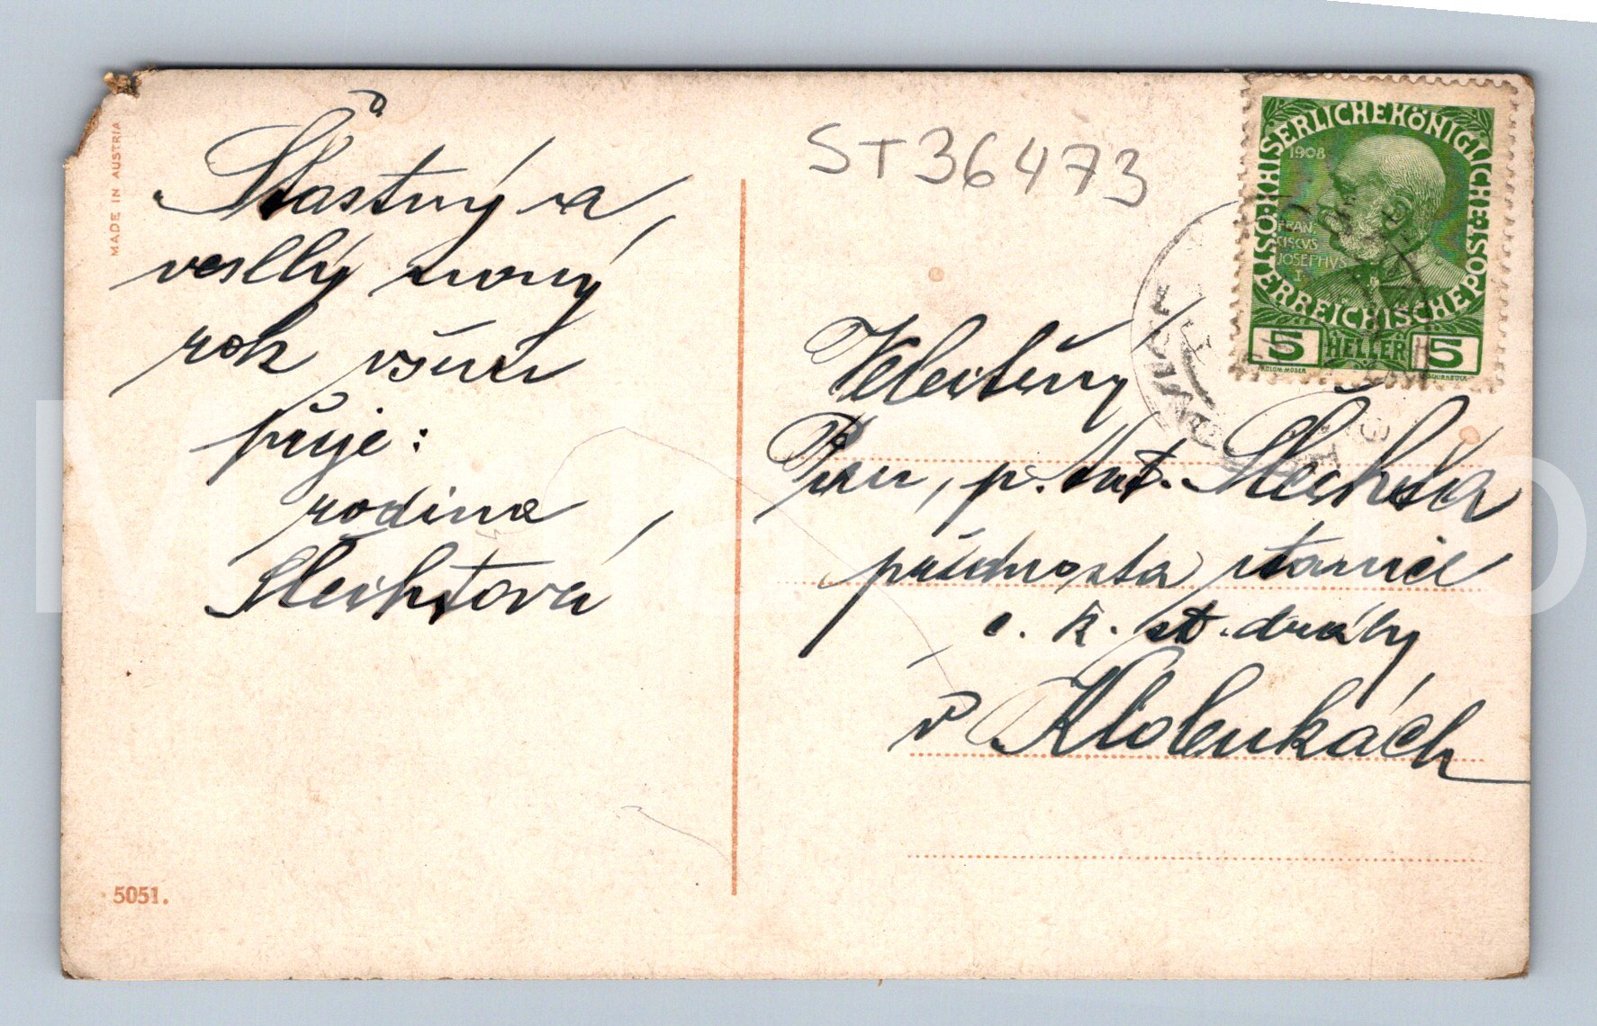 MADE IN AUSTRIA
Šťastný a
veselý nový
rok všem
přeje:
rodina
Šlechtová
5051.
ST36473
Velectěný
Pan, p. Ant. Šlechta
přednosta stanice
c. k. st. dráhy
v Klobukách
KAISERLICHE KÖNIGLICHE ÖSTERREICHISCHE POST
1908
FRAN
CISCVS
JOSEPHVS
I
5 HELLER 5
KOLOM. MOSER